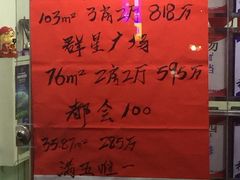 103m² 3房2厅 818万
群星广场
76m² 2房2厅 595万
都会100
35.87m² 285万
满五唯一